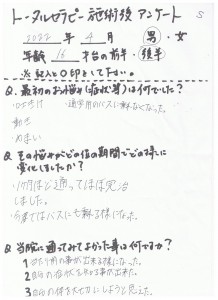 トータルセラピー施術後 アンケート S
2022 年 4 月 男・女
年齢 16 才台の前半・後半
※記入と〇印をして下さい。
Q. 最初のお悩み(症状等)は何でした?
・立ち技 通学用のバスに乗れなくなった。
動き
・めまい
Q. そのお悩みがどの位の期間でどの様に
変化しましたか?
1ヶ月ほど通ってほぼ完治
しました。
今まではバスにも乗れる様になった。
Q. 当院に通ってみてよかった事は何ですか?
1 当たり前の事が出来る様になった。
2 自分の症状を知る事が出来た。
3 自分の体を大切にしようと思えた。